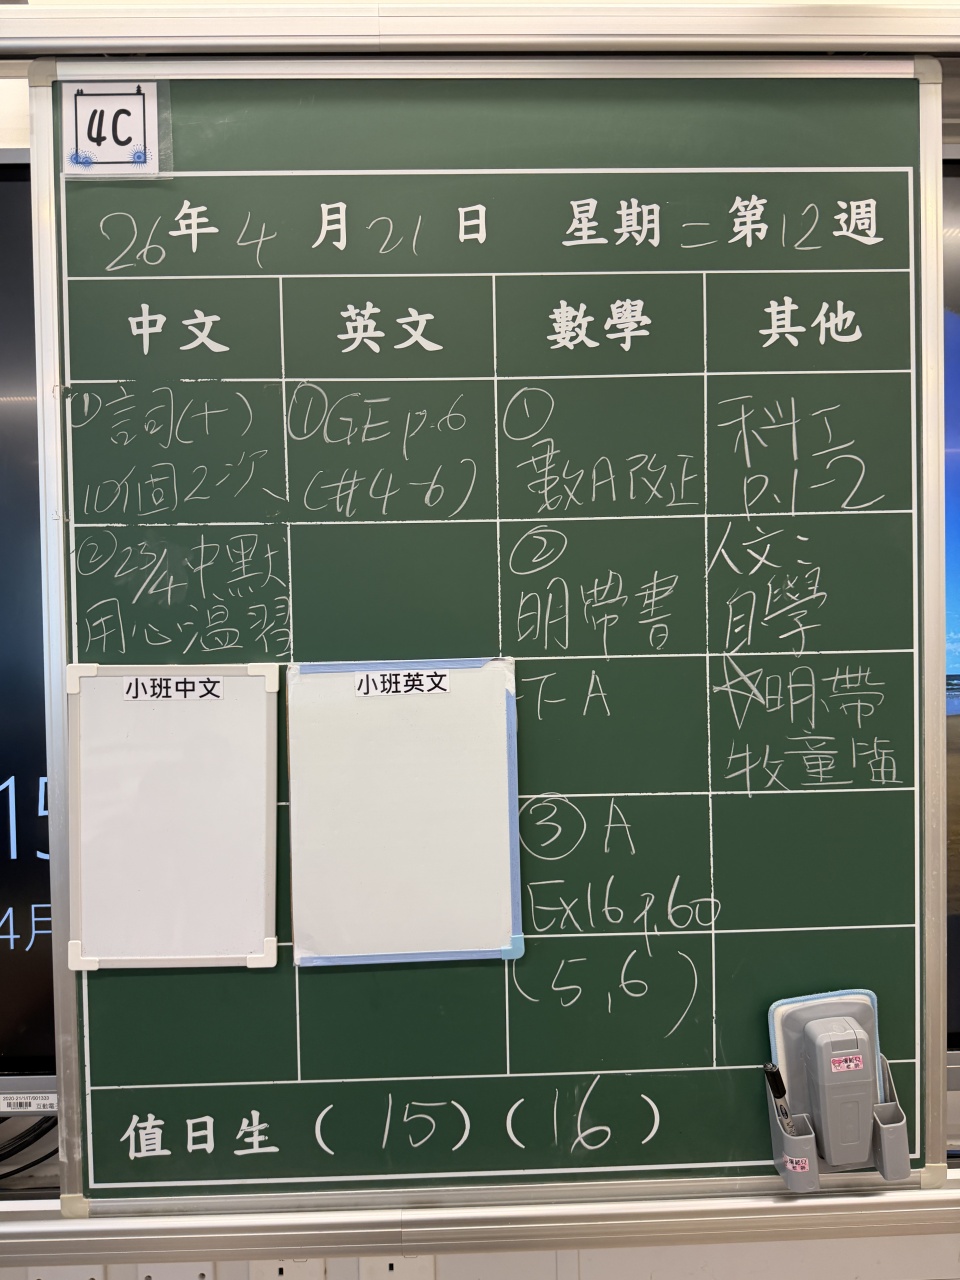 4C
26年4月21日 星期二第12週
中文 英文 數學 其他
①詞(十)
10個2次
②23/4中默
用心溫習
小班中文
①GE p.6
(#4-6)
小班英文
①
數A改正
②
明帶書
下A
③ A
Ex16 p.60
(5,6)
科工
p.1-2
人文:
自學
明帶
牧童笛
值日生(15)(16)
15
4月
2020-21/1/IT/001333
互動電子